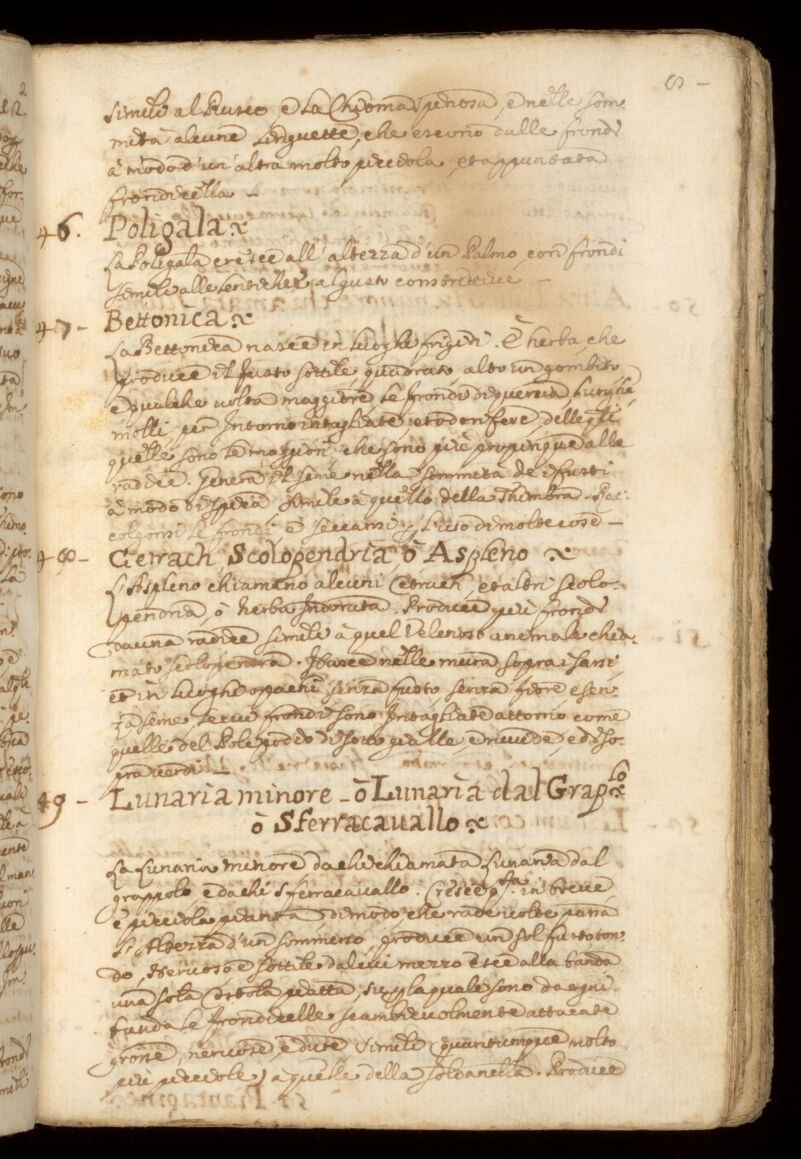 8 -
simili al Rusco, è la Chioma spinosa, è nelle som-
mità alcune linguette, che escono dalle frondi
à modo d'un' altra molto piccola, et appuntata
frondicella -
46. Poligala x
La Poligala cresce all' altezza d'un Palmo, con frondi
simili alle lenticchie, al gusto constrettive -
47 - Bettonica x
La Bettonica nasce in luoghi frigidi. È herba, che
produce il fusto sottile, quadrato, alto un gombito
è qualche volta maggiore le frondi di quercia, lunghe,
molli per Intorno intagliate, et odorifere delle qli
quelle sono le maggiori che sono più propinque alle
radici. Genera il seme nella sommità de i fusti
à modo di spica simile à quello della Thimbra. Rac-
colgonsi le frondi, è seccansi p l'uso di molte cose -
48 - Cetrach, Scolopendria, ò Aspleno x
L'Aspleno chiamano alcuni Cetrach, et altri scolo-
pendria, ò herba Indorata. Produce più frondi
da una radice simili à quel Velenoso animale chia-
mato scolopendra. Nasce nelle mura sopra i sassi,
et in luoghi opachi senza fusto senza fiore è sen-
za seme le cui frondi sono Intagliate attorno come
quelle del Polipodio di sotto gialle è ruvide, e di so-
pra verdi -
49 - Lunaria minore - ò Lunaria dal Graplo x
ò Sferracauallo x
La Lunaria minore da chi chiamata Lunaria dal
grappolo è da chi sferracavallo. Cresce qsta in breue
è picciola pianta di modo, che rade volte passa
l'Altezza d'un sommesso, produce un sol fusto ton-
do, Nervoso è sottile dal cui mezzo esce alla banda
una sola Costola piatta, su p la quale sono da ogni
banda le frondicelle scambievolmente attacate
grosse, nervose, è dure simili (quantunque molto
più picciole) a quelle della soldanella. Produce